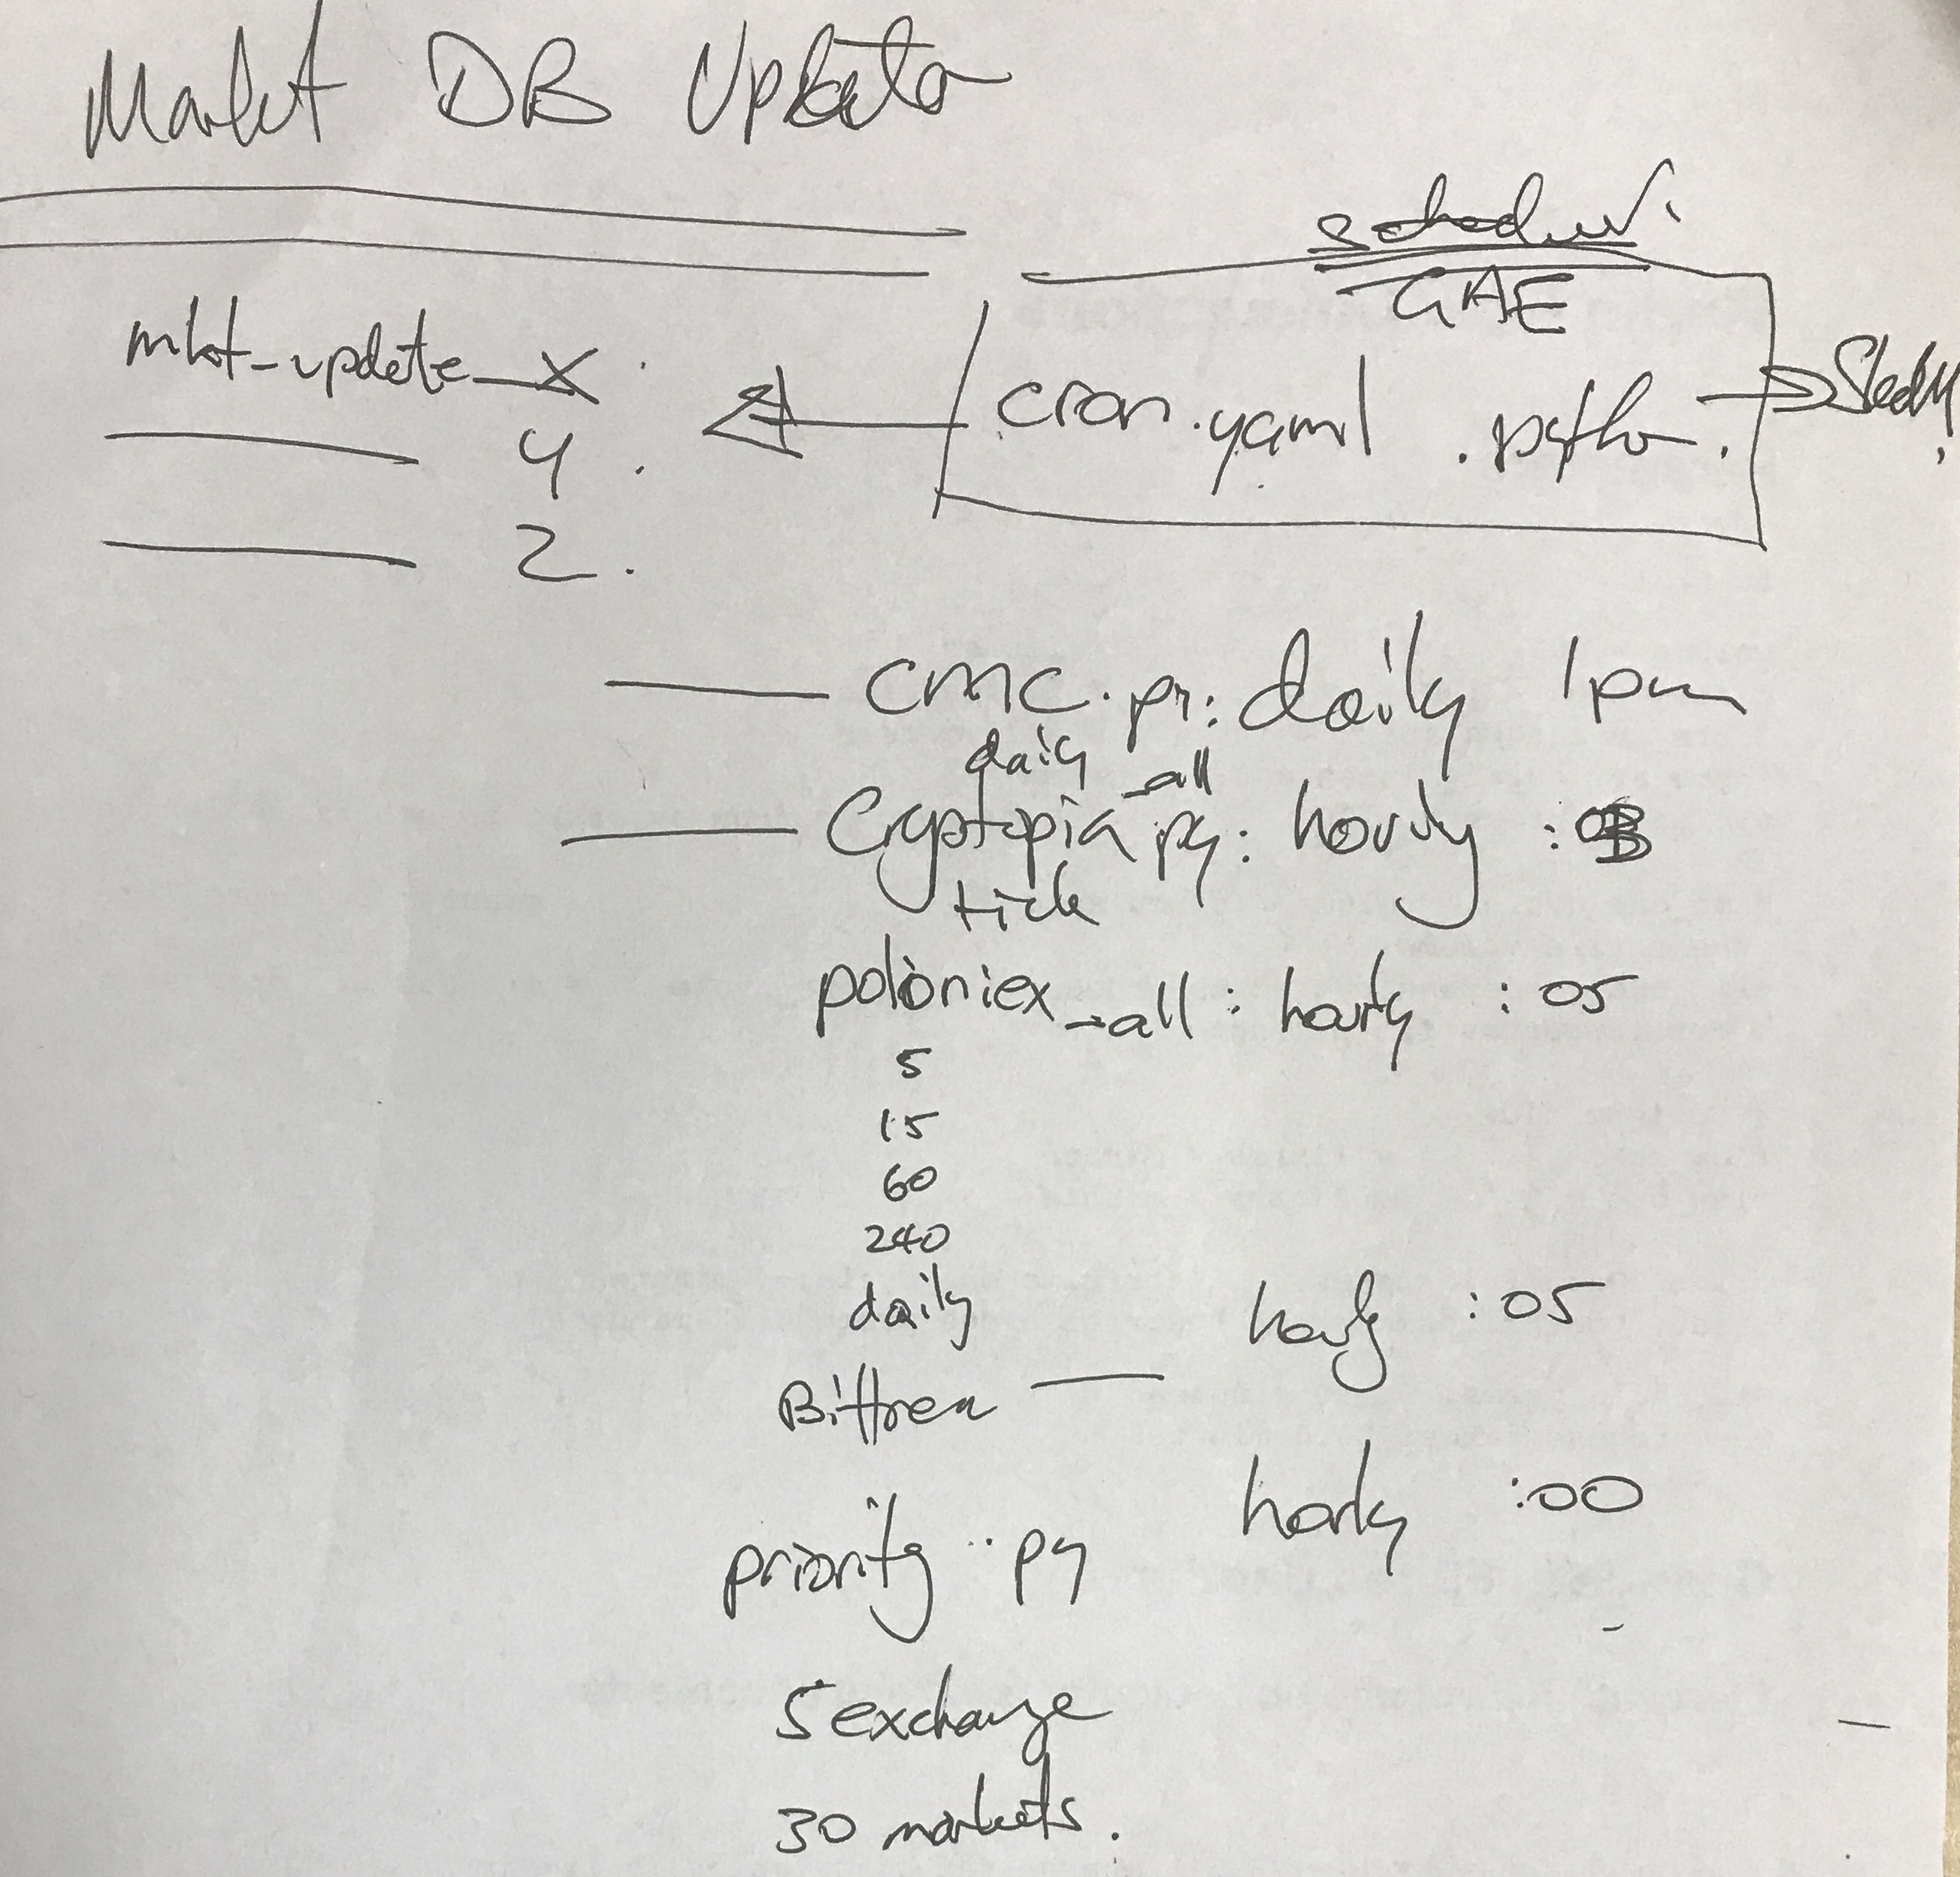 Market DB Updater
scheduler
GAE
mkt-update_X
cron.yaml . python.
Y
Z.
CMC.py: daily 1pm
daily _all
Cryptopia py: hourly
tick
poloniex_all: hourly :05
5
15
60
240
daily
hourly :05
Bittrex
hourly :00
priority .. py
5 exchange
30 markets.